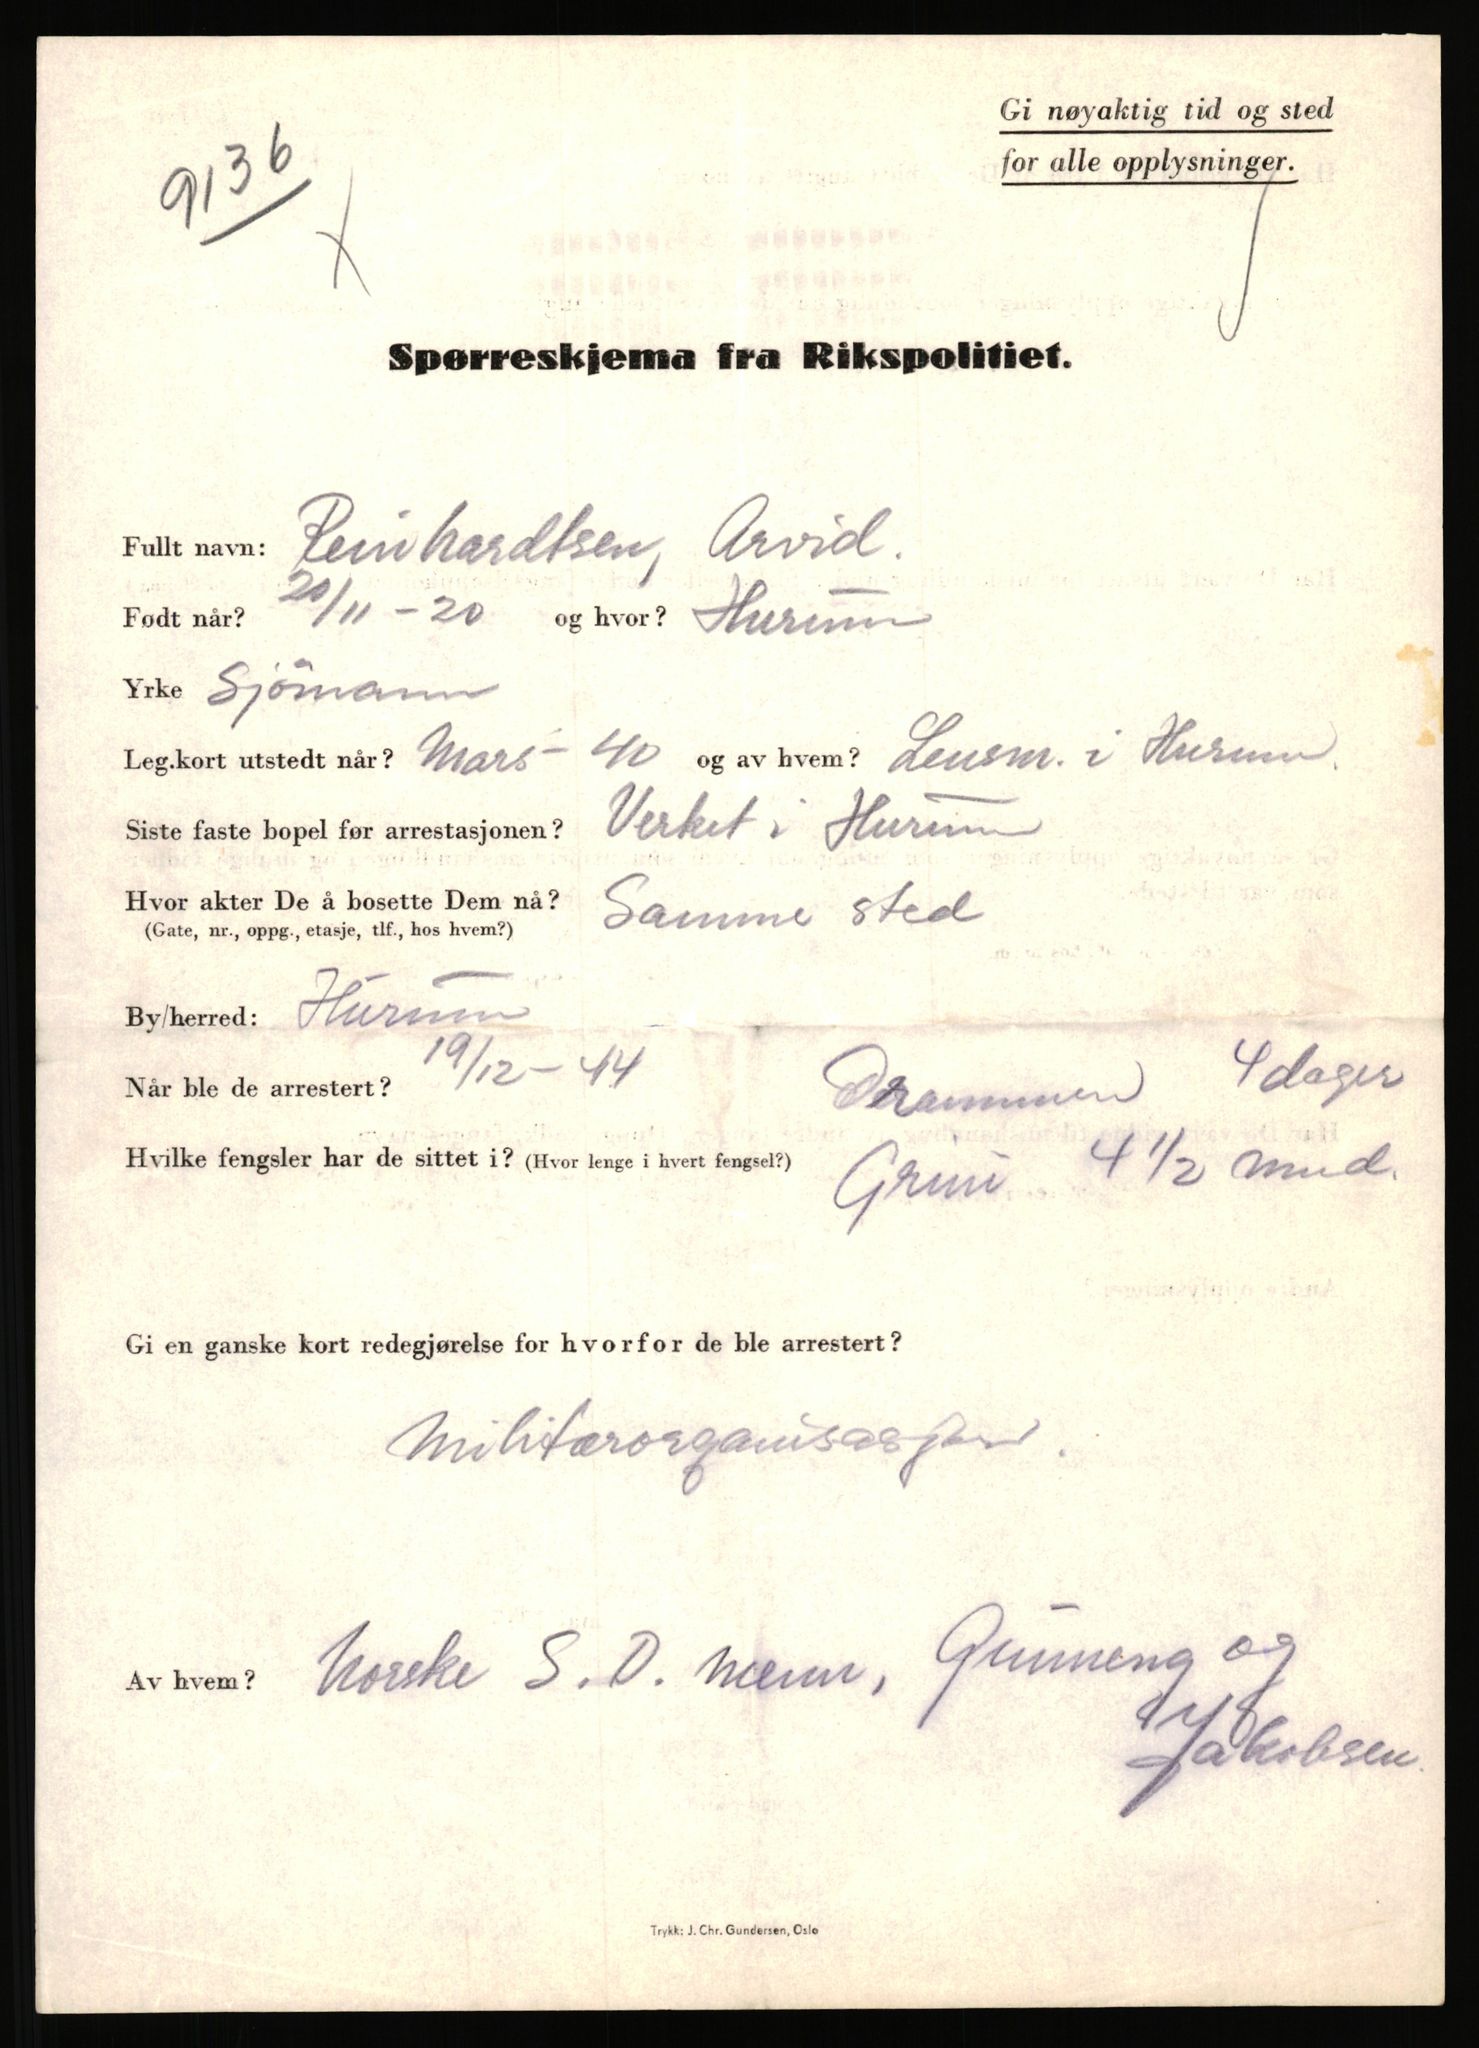 Gi nøyaktig tid og sted
for alle opplysninger.
9136
Spørreskjema fra Rikspolitiet.
Fullt navn: Reinhardtsen, Arvid.
Født når? 20/11-20 og hvor? Hurum
Yrke Sjömann
Leg.kort utstedt når? Mars-40 og av hvem? Lensm. i Hurum.
Siste faste bopel før arrestasjonen? Verket i Hurum
Hvor akter De å bosette Dem nå? Samme sted
(Gate, nr., oppg., etasje, tlf., hos hvem?)
By/herred: Hurum
Når ble de arrestert? 19/12-44
Drammen 4 dager
Hvilke fengsler har de sittet i? (Hvor lenge i hvert fengsel?) Grini 4 1/2 mnd.
Gi en ganske kort redegjørelse for hvorfor de ble arrestert?
Militærorganisasjon.
Av hvem? Norske S.D. menn, Gunneng og
Jakobsen.
Trykk: J. Chr. Gundersen, Oslo